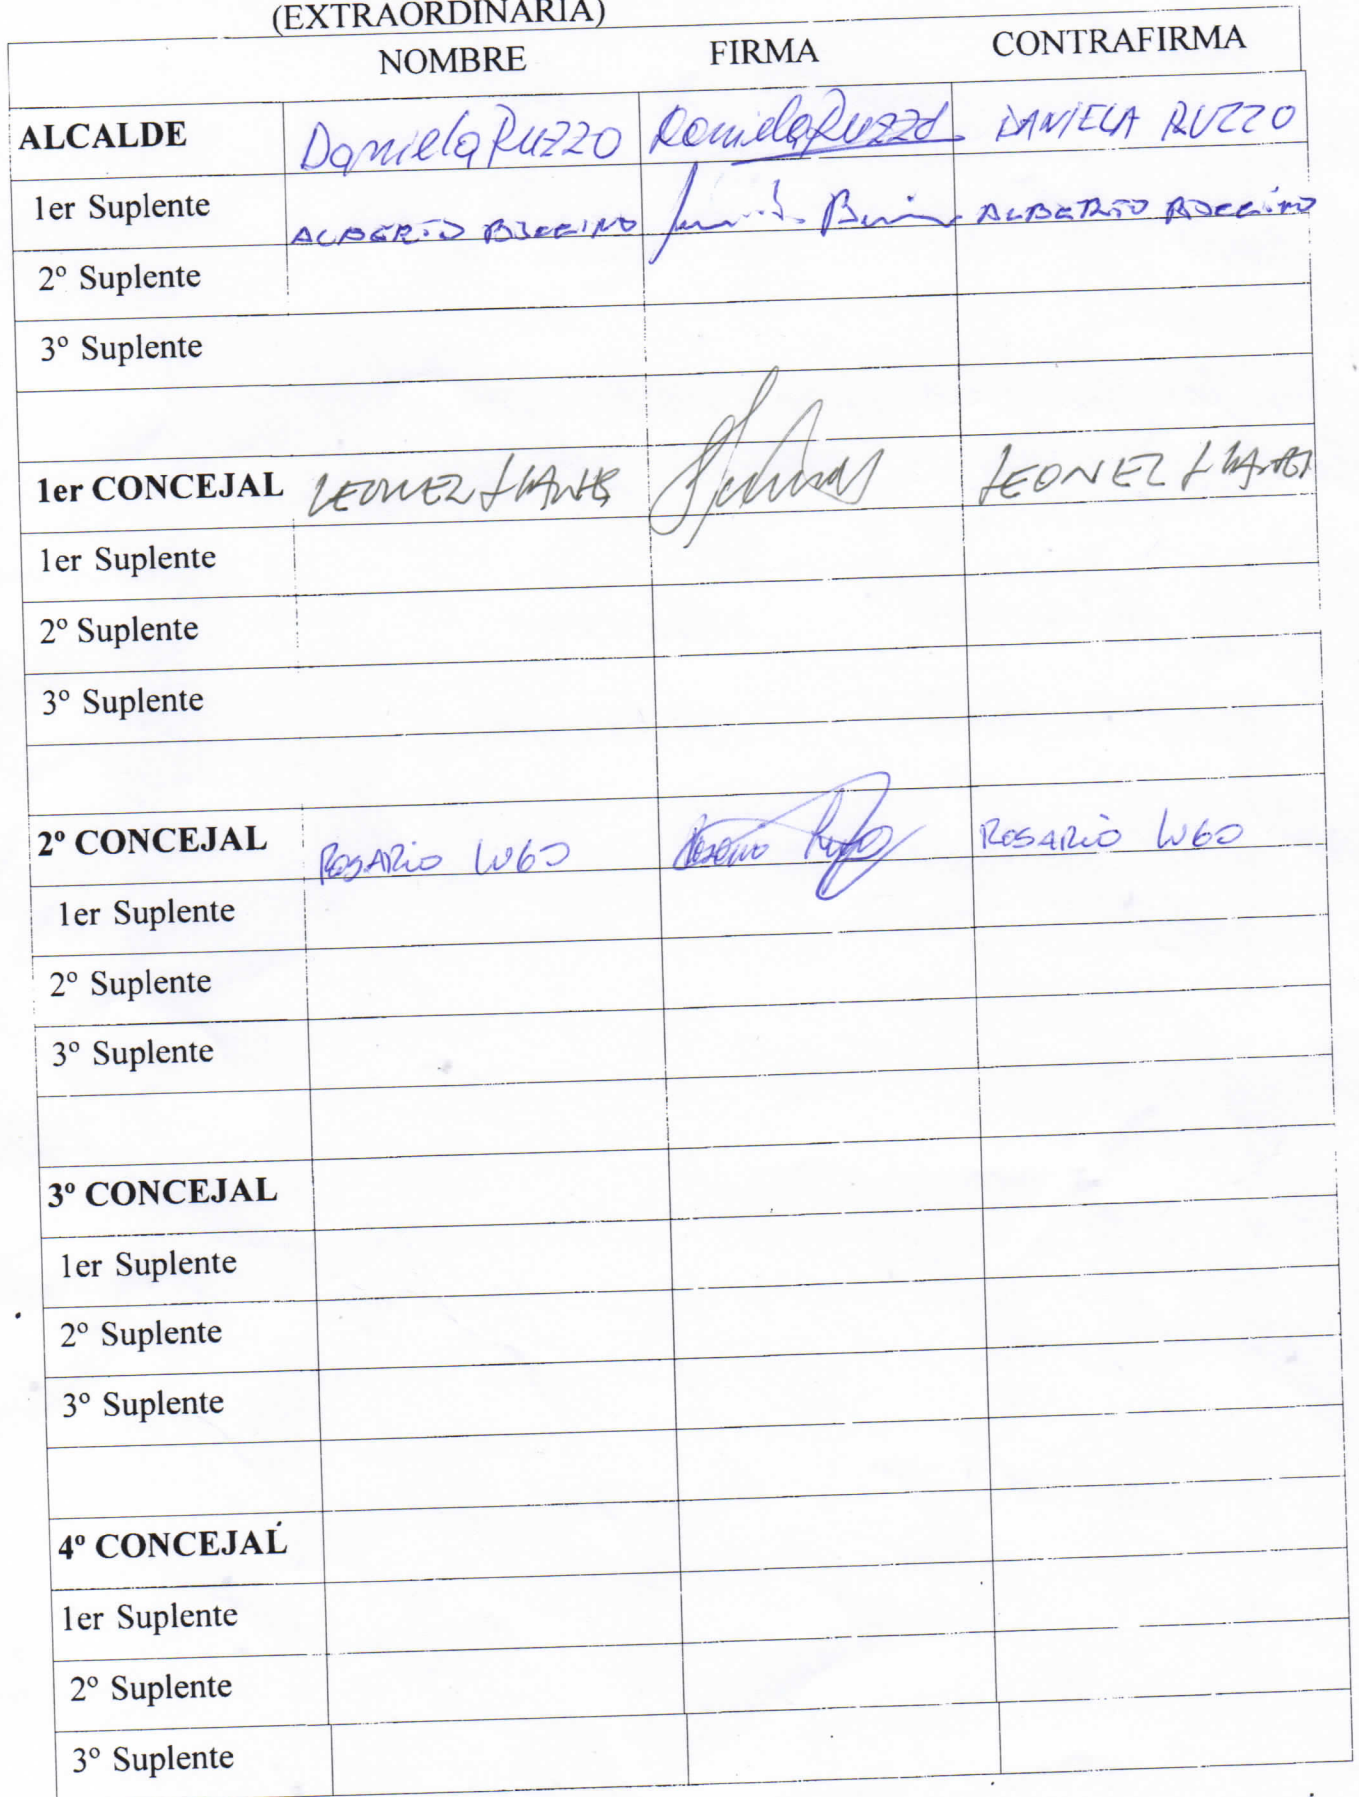 (EXTRAORDINARIA)
NOMBRE FIRMA CONTRAFIRMA
ALCALDE Daniela Ruzzo Daniela Ruzzo DANIELA RUZZO
1er Suplente ALBERTO ALBERTO
2º Suplente
3º Suplente
1er CONCEJAL LEONEZ LEONEZ
1er Suplente
2º Suplente
3º Suplente
2º CONCEJAL ROSARIO LUGO Rosario Lugo ROSARIO LUGO
1er Suplente
2º Suplente
3º Suplente
3º CONCEJAL
1er Suplente
2º Suplente
3º Suplente
4º CONCEJAL
1er Suplente
2º Suplente
3º Suplente